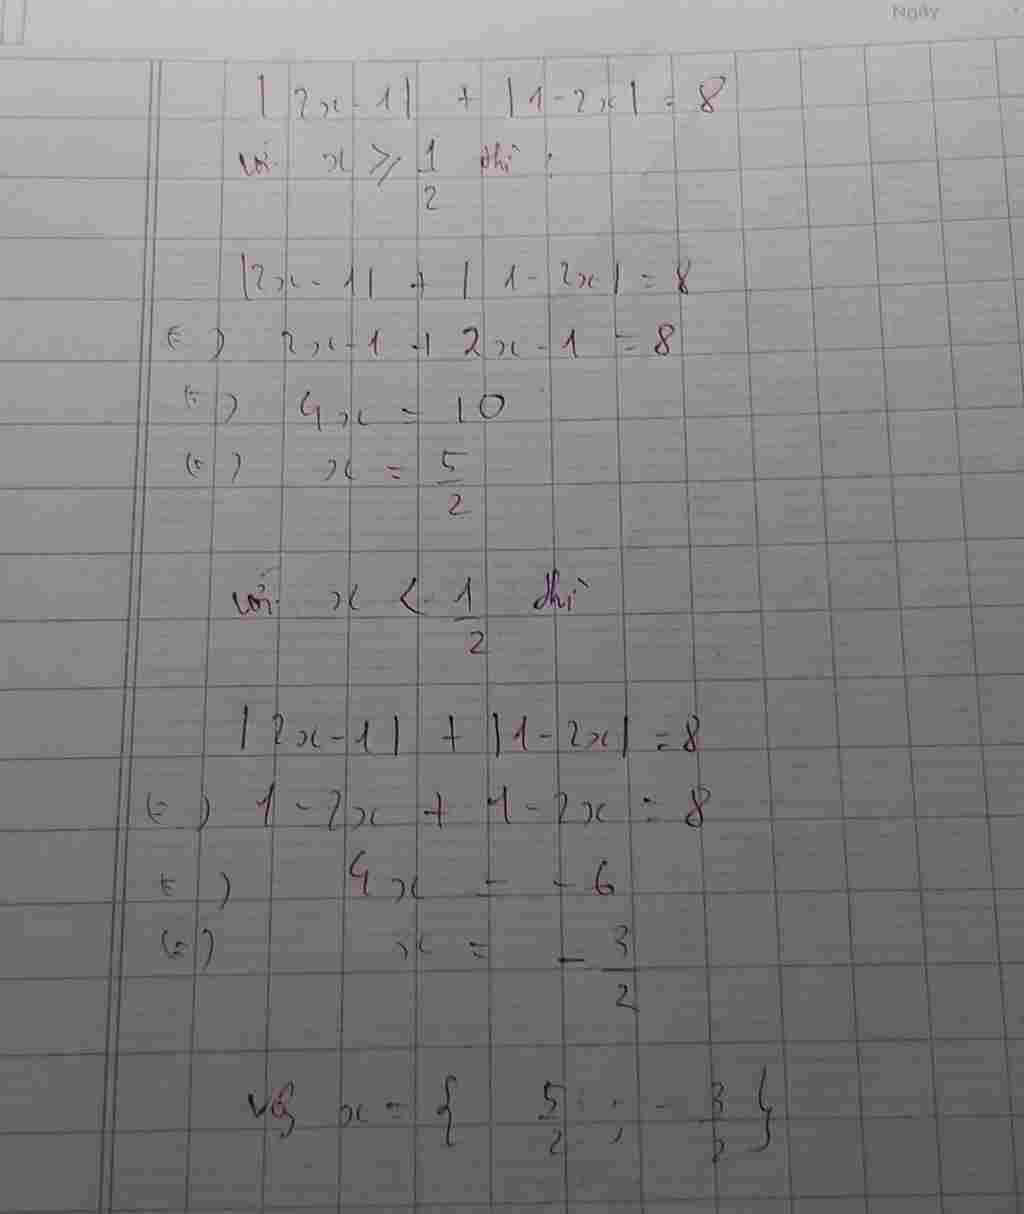 Ngày
|2x-1| + |1-2x| = 8
với x ≥ 1/2 thì :
|2x-1| + |1-2x| = 8
(=) 2x-1 + 2x-1 = 8
(=) 4x = 10
(=) x = 5/2
với x < 1/2 thì
|2x-1| + |1-2x| = 8
(=) 1-2x + 1-2x = 8
(=) 4x = -6
(=) x = -3/2
Vậy x = { 5/2 ; -3/2 }